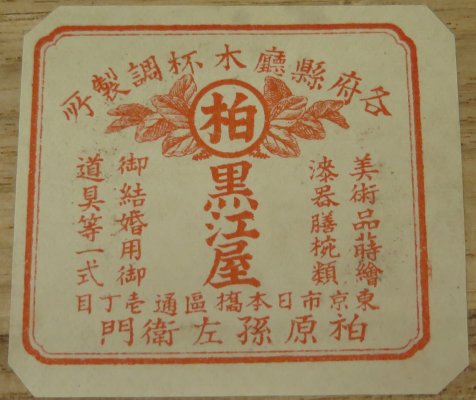 各府縣廳木杯調製所
柏
黒江屋
美術品蒔繪
漆器膳椀類
御結婚用御
道具等一式
東京市日本橋區通壱丁目
柏原孫左衛門